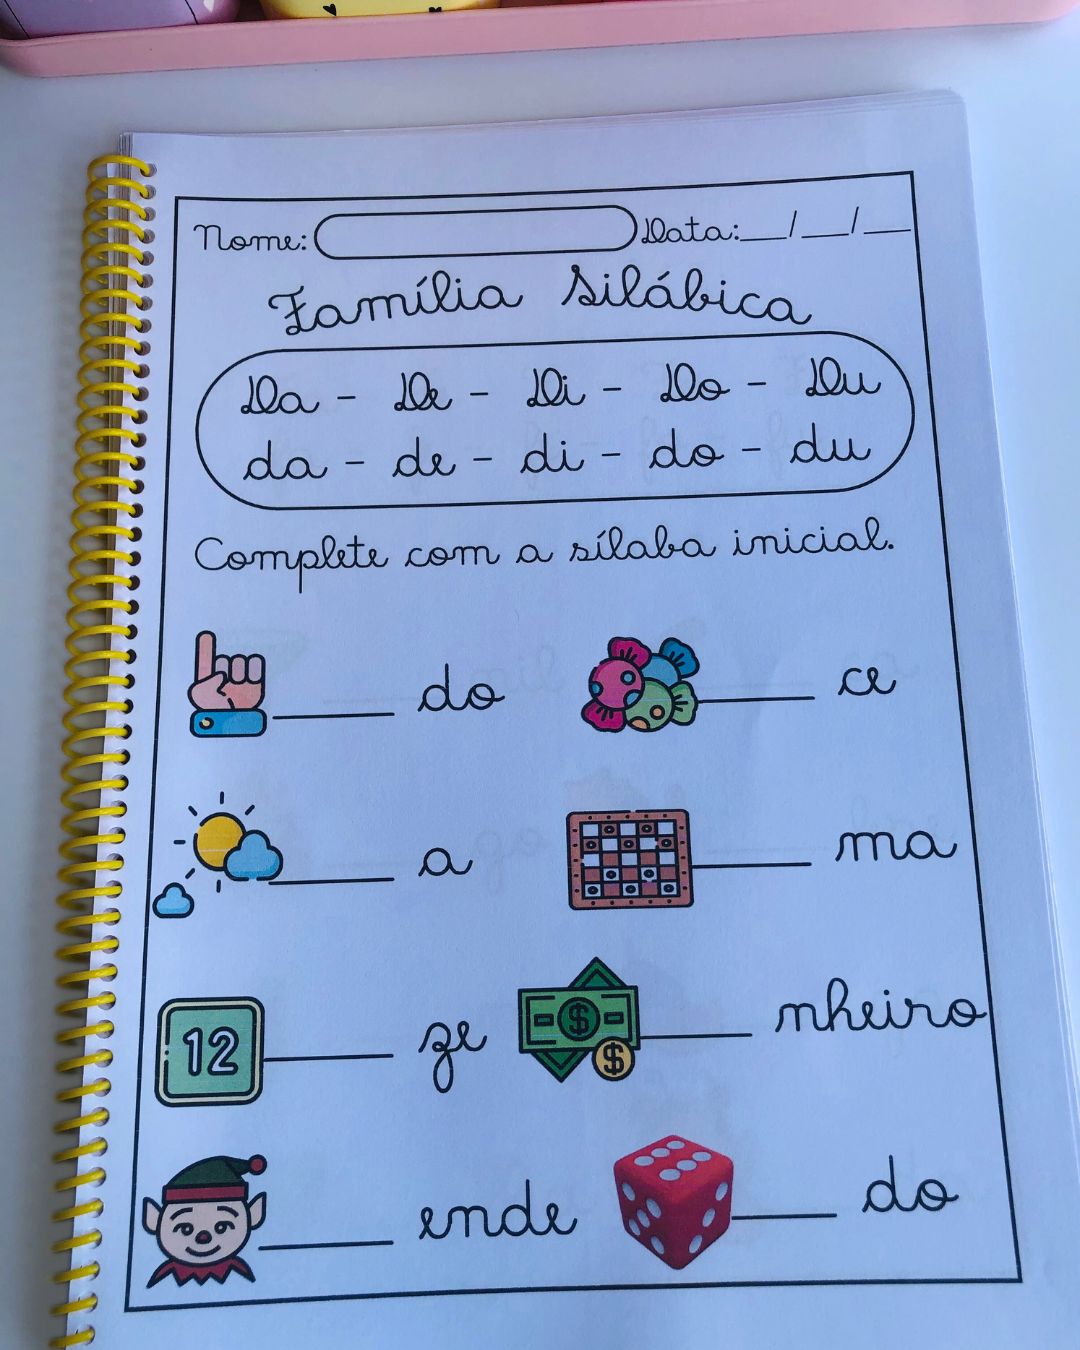 Nome: Data:__/__/__
Família Silábica
Da - De - Di - Do - Du
da - de - di - do - du
Complete com a sílaba inicial.
____ do ____ ce
____ a ____ ma
12 ____ ze $ $ ____ nheiro
____ ende ____ do